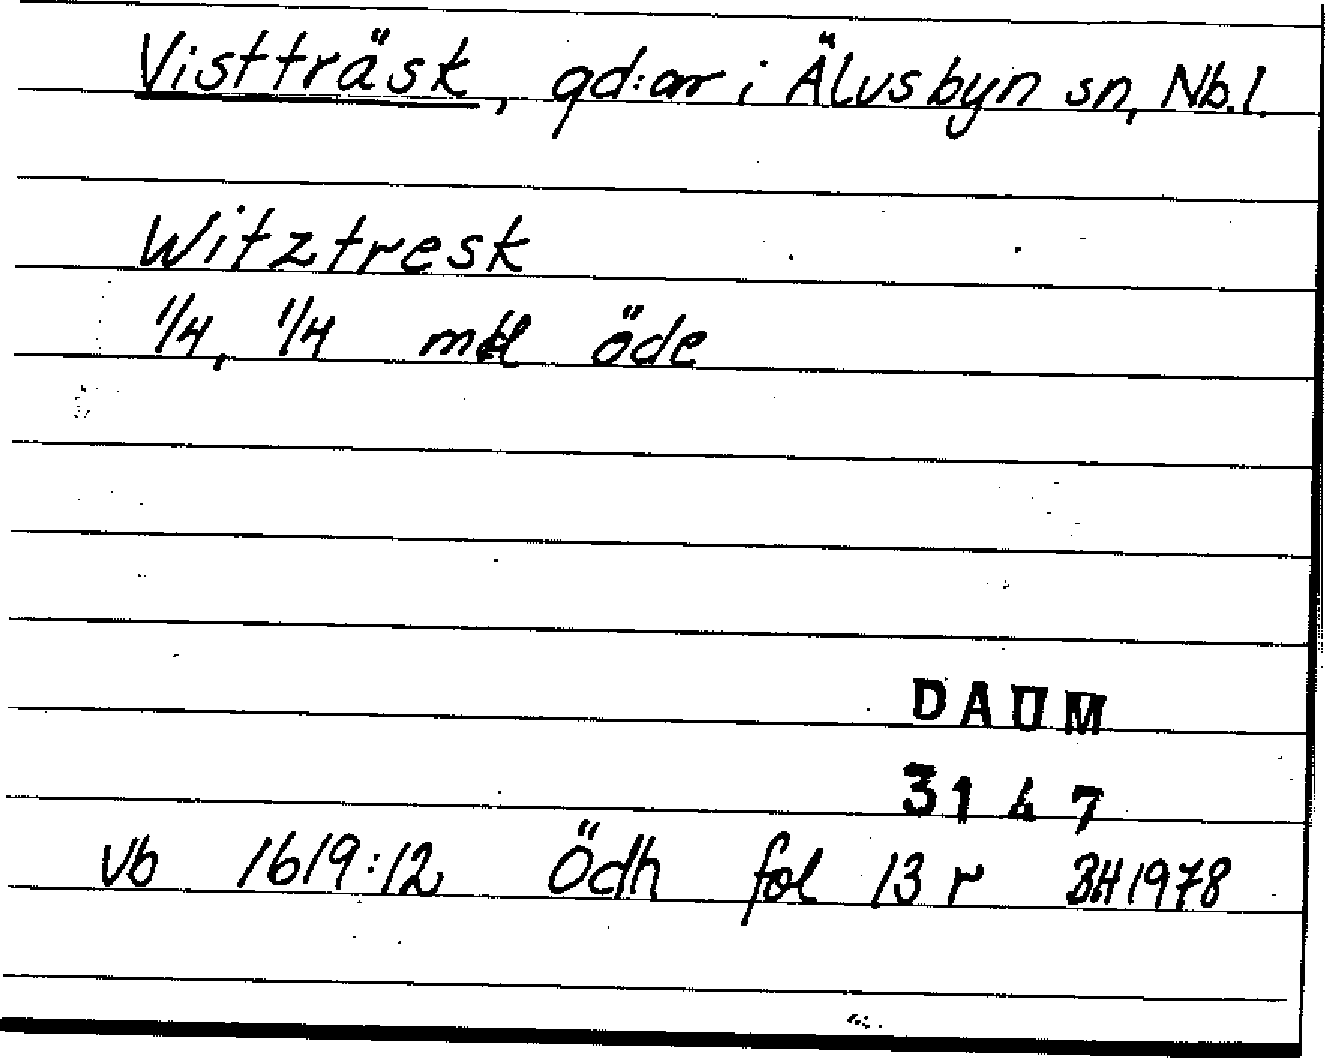 Vistträsk, gd:ar i Älvsbyn sn, Nb.l.
Witztresk
1/4, 1/4 mtl öde
DAUM
3147
Vb 1619:12 Ödh fol 13 r BH 1978